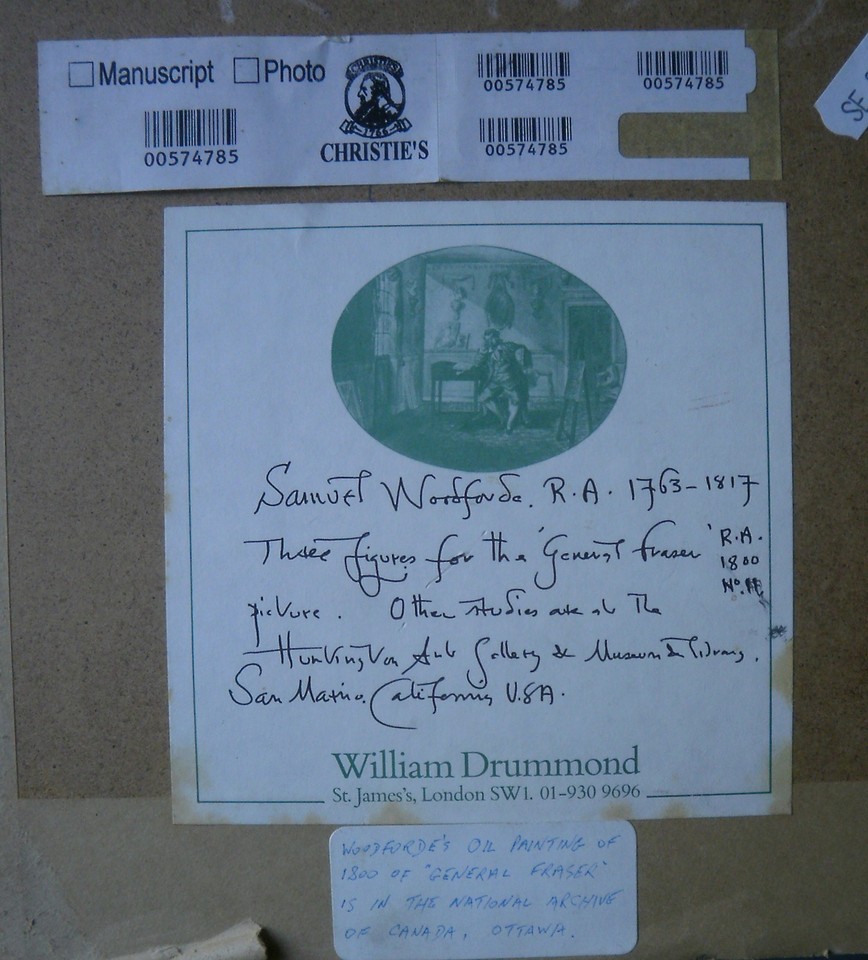 Manuscript Photo
00574785
CHRISTIE'S
1766
CHRISTIE'S
00574785
00574785
00574785
SE
Samuel Woodforde. R.A. 1763-1817
Three figures for the 'General Fraser' R.A.
1800
No.
picture. Other studies are at The
Huntington Art Gallery & Museum & Library,
San Marino. California U.S.A.
William Drummond
St. James's, London SW1. 01-930 9696
WOODFORDE'S OIL PAINTING OF
1800 OF "GENERAL FRASER"
IS IN THE NATIONAL ARCHIVE
OF CANADA, OTTAWA.